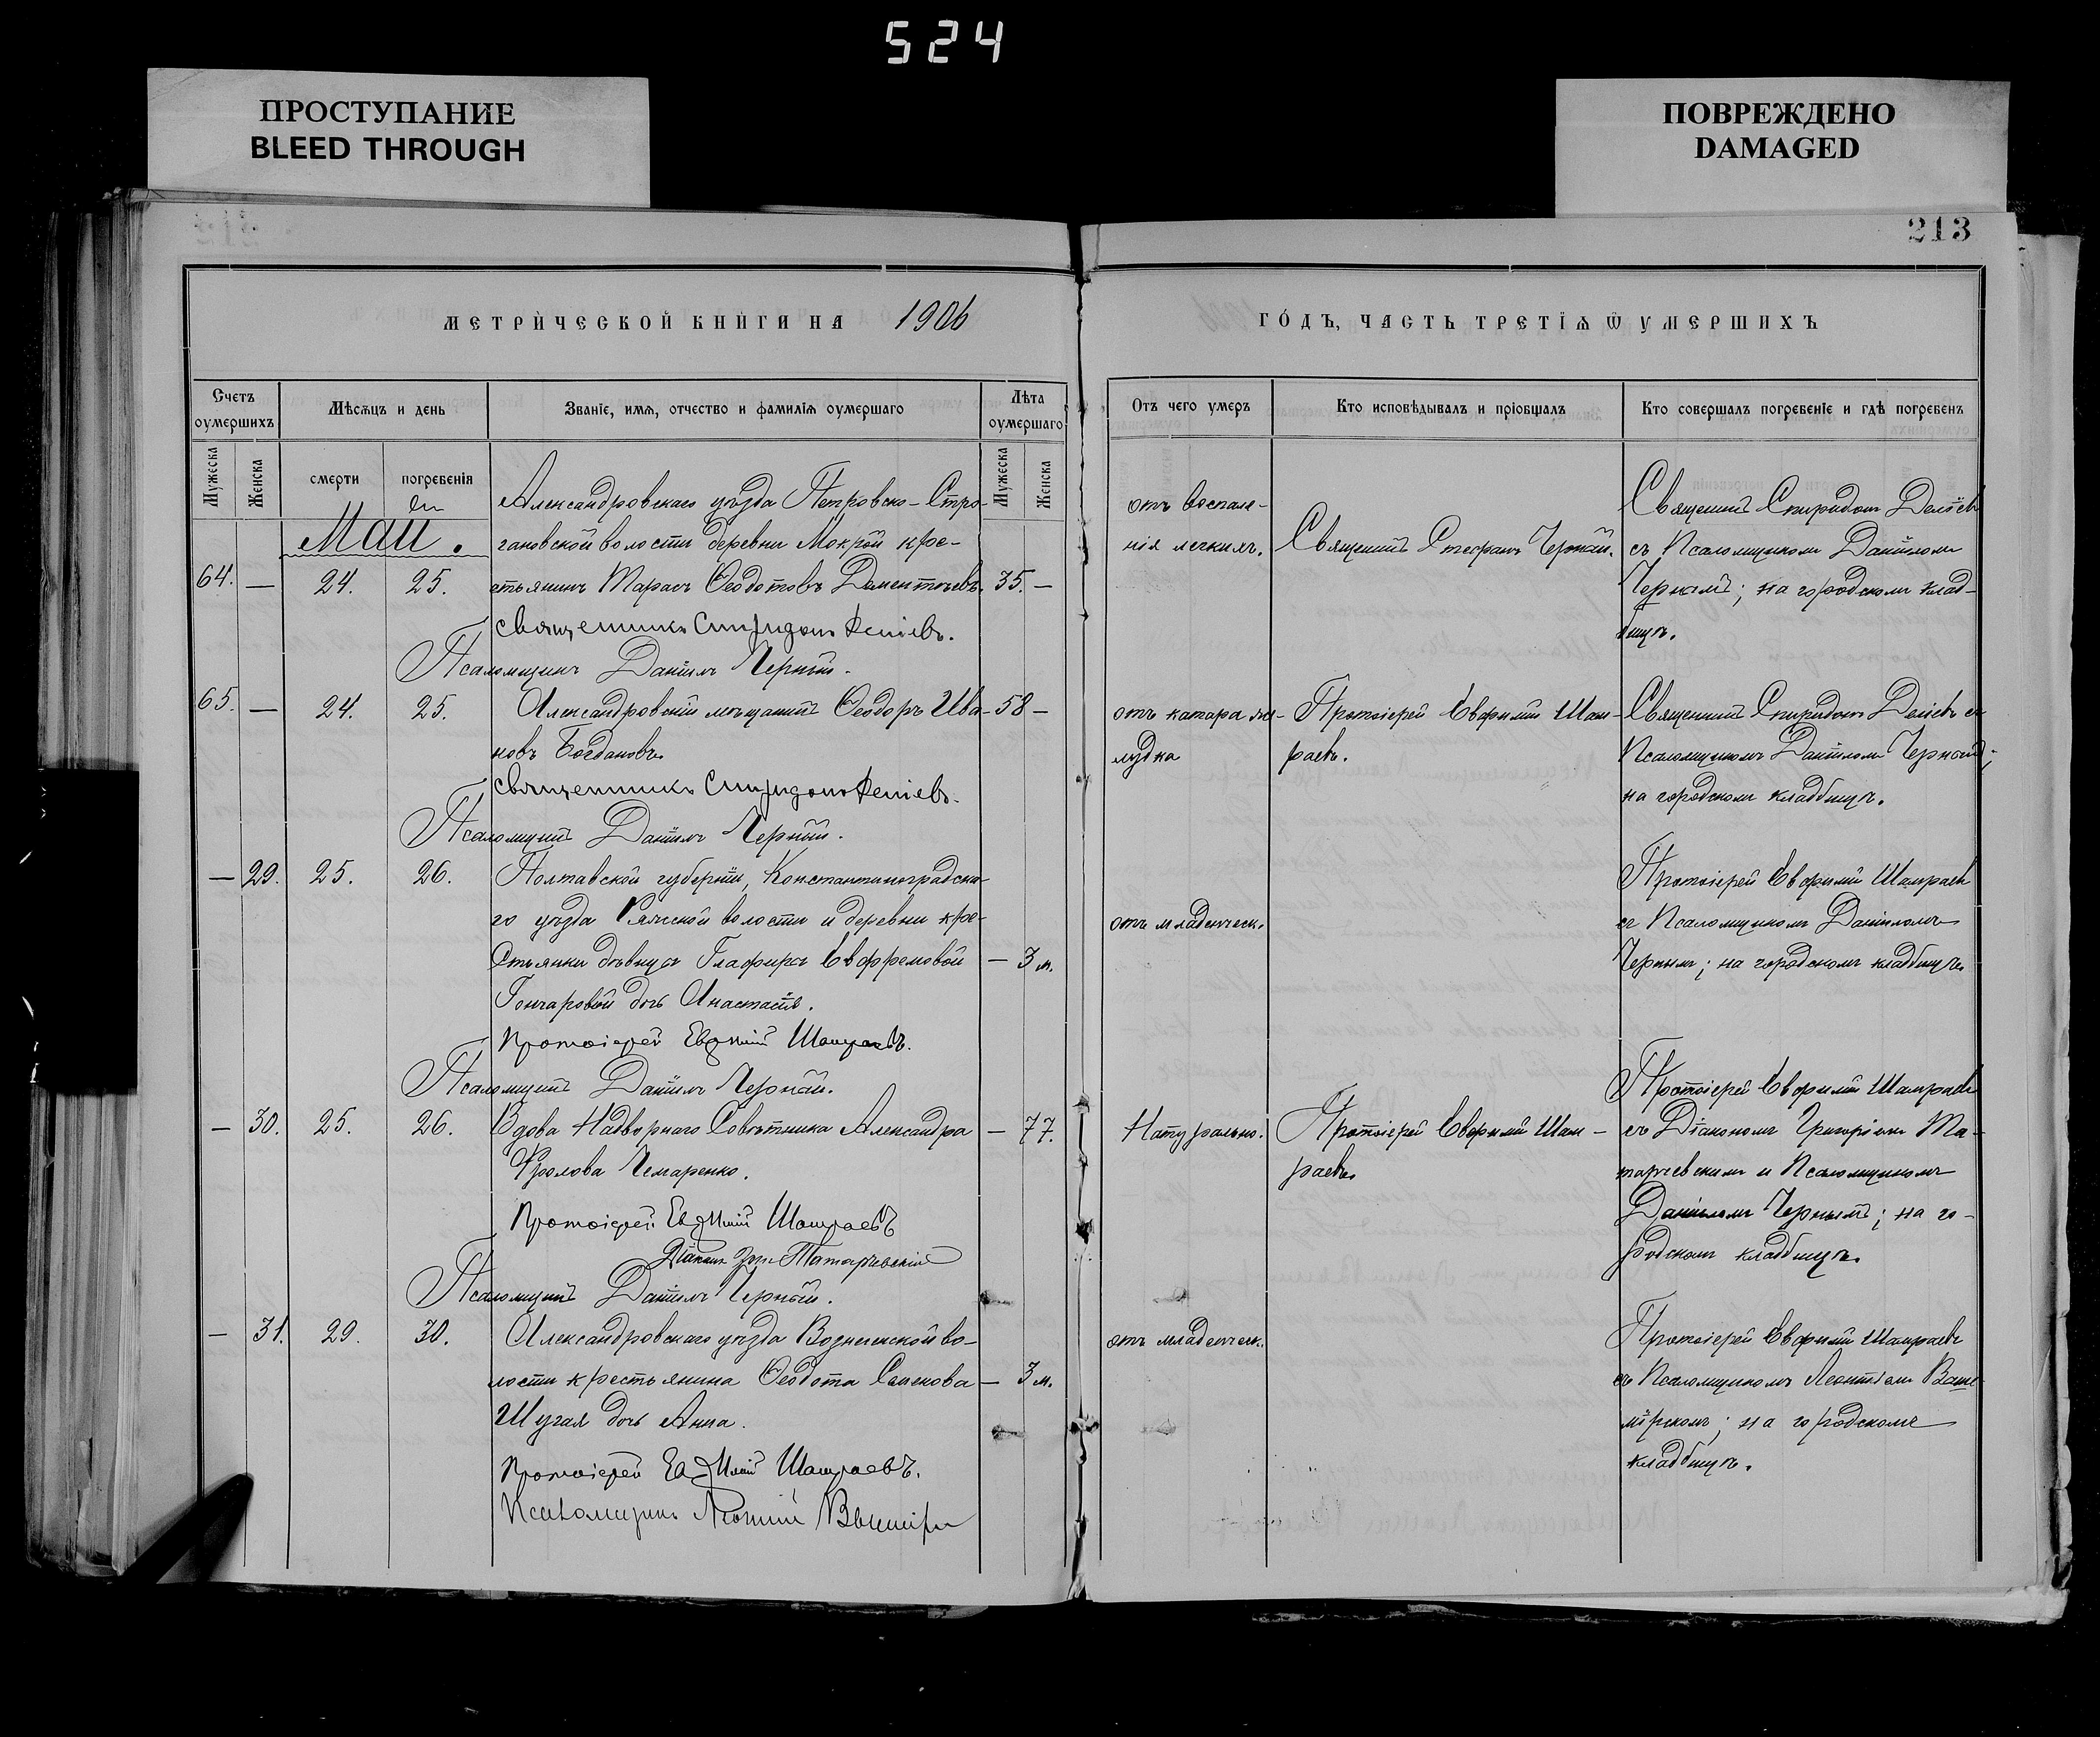 524
ПРОСТУПАНИЕ
BLEED THROUGH
ПОВРЕЖДЕНО
DAMAGED
213
МЕТРИЧЕСКОЙ КНИГИ НА 1906
ГОДЪ, ЧАСТЬ ТРЕТІѦ Ѿ УМЕРШИХЪ
Счетъ оумершихъ
Мѣсѧцъ и день
Званіе, имѧ, отчество и фамиліѧ оумершаго
Лѣта оумершаго
Отъ чего умеръ
Кто исповѣдывалъ и пріобщалъ
Кто совершалъ погребеніе и гдѣ погребенъ
Мужеска
Женска
смерти
погребенія
Мужеска
Женска
Май.
64. — 24. 25.
Александровскаго уѣзда Петровско-Стро-
гановской волости деревни Мокрой кре-
стьянинъ Тарасъ Ѳеодотовъ Дементьевъ. 35. —
Священникъ Спиридонъ Деліевъ.
Псаломщикъ Даніилъ Черный.
отъ воспале-
нія легкихъ.
Священникъ Стефанъ Черный.
Священникъ Спиридонъ Деліевъ
съ Псаломщикомъ Даніиломъ
Чернымъ; на городскомъ клад-
бищѣ.
65. — 24. 25.
Александровскій мѣщанинъ Ѳеодоръ Ива- 58 —
новъ Богдановъ
Священникъ Спиридонъ Деліевъ.
Псаломщикъ Даніилъ Черный.
отъ катара же-
лудка
Протоіерей Евфимій Шам-
раевъ.
Священникъ Спиридонъ Деліевъ съ
Псаломщикомъ Даніиломъ Чернымъ;
на городскомъ кладбищѣ.
— 29. 25. 26.
Полтавской губерніи, Константиноградска-
го уѣзда волости и деревни кре-
стьянки дѣвицы Глафиры Евфремовой — 3 м.
Гончаровой дочь Анастасія.
Протоіерей Евфимій Шамраевъ.
Псаломщикъ Даніилъ Черный.
отъ младенческ.
Протоіерей Евфимій Шамраевъ
съ Псаломщикомъ Даніиломъ
Чернымъ; на городскомъ кладбищѣ.
— 30. 25. 26.
Вдова Надворнаго Совѣтника Александра — 77.
Фролова Чемаренко.
Протоіерей Евфимій Шамраевъ
Діаконъ Григ. Татарчевскій
Псаломщикъ Даніилъ Черный.
Натурально.
Протоіерей Евфимій Шам-
раевъ.
Протоіерей Евфимій Шамраевъ
съ Діакономъ Григоріемъ Та-
тарчевскимъ и Псаломщикомъ
Даніиломъ Чернымъ; на го-
родскомъ кладбищѣ.
— 31. 29. 30.
Александровскаго уѣзда Вознесенской во-
лости крестьянина Ѳеодота Семенова — 3 м.
Шугая дочь Анна.
Протоіерей Евфимій Шамраевъ.
Псаломщикъ Леонтій
отъ младенческ.
Протоіерей Евфимій Шамраевъ
съ Псаломщикомъ Леонтіемъ
на городскомъ
кладбищѣ.